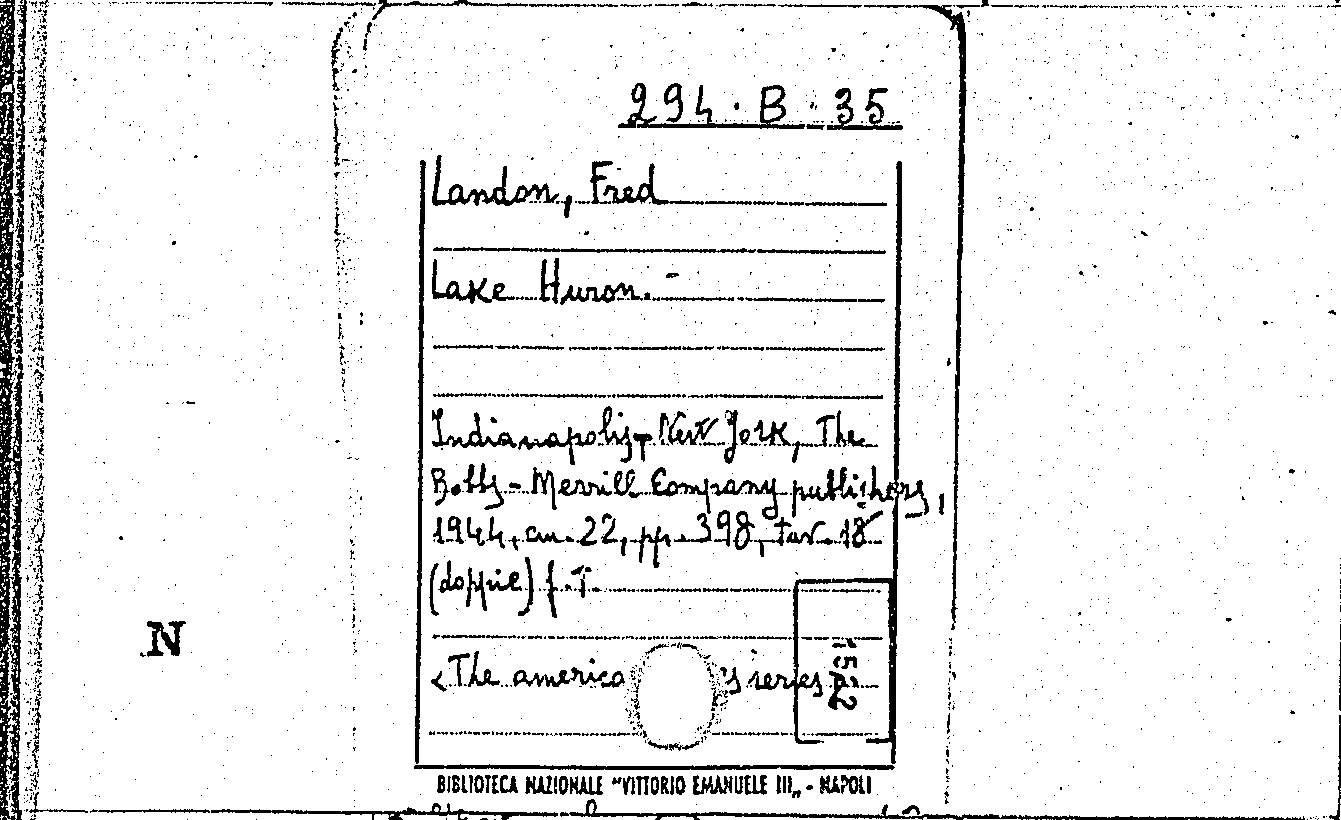 294 · B · 35
Landon, Fred
Lake Huron. -
Indianapolis, New York, The
Bobbs - Merrill Company publishers,
1944, cm. 22, pp. 398, tav. 18
(doppie) f. T.
<The america s series>
N
BIBLIOTECA NAZIONALE "VITTORIO EMANUELE III„ - NAPOLI